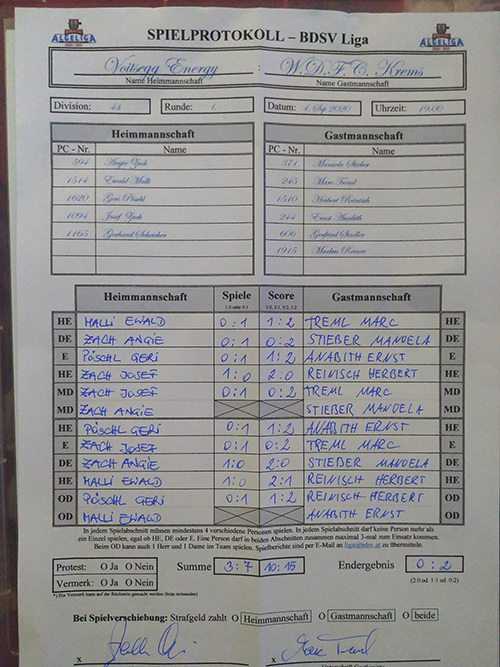 ALGELIGA SPIELPROTOKOLL – BDSV Liga ALGELIGA
Voitsegg Energy : W.D.F.C. Krems
Name Heimmannschaft Name Gastmannschaft
Division: 4.b Runde: 1. Datum: 4. Sep 2020 Uhrzeit: 19:00
Heimmannschaft Gastmannschaft
PC - Nr. Name PC - Nr. Name
594 Angie Zach 371 Manuela Stieber
1514 Ewald Malli 245 Marc Treml
1620 Geri Pöschl 1510 Herbert Reinisch
1094 Josef Zach 244 Ernst Anabith
1165 Gerhard 606 Gerfried
1915 Markus Reiner
Heimmannschaft Spiele Score Gastmannschaft
1:0 oder 0:1 2:0, 2:1, 0:2, 1:2
HE MALLI EWALD 0:1 1:2 TREML MARC HE
DE ZACH ANGIE 0:1 0:2 STIEBER MANUELA DE
E PÖSCHL GERI 0:1 1:2 ANABITH ERNST E
HE ZACH JOSEF 1:0 2:0 REINISCH HERBERT HE
MD ZACH JOSEF 0:1 0:2 TREML MARC MD
MD ZACH ANGIE STIEBER MANUELA MD
HE PÖSCHL GERI 0:1 1:2 ANABITH ERNST HE
E ZACH JOSEF 0:1 0:2 TREML MARC E
DE ZACH ANGIE 1:0 2:0 STIEBER MANUELA DE
HE MALLI EWALD 1:0 2:1 REINISCH HERBERT HE
OD PÖSCHL GERI 0:1 1:2 REINISCH HERBERT OD
OD MALLI EWALD ANABITH ERNST OD
In jedem Spielabschnitt müssen mindestens 4 verschiedene Personen spielen. In jedem Spielabschnitt darf keine Person mehr als
ein Einzel spielen, egal ob HE, DE oder E. Eine Person darf in beiden Abschnitten zusammen maximal 3-mal zum Einsatz kommen.
Beim OD kann auch 1 Herr und 1 Dame im Team spielen. Spielberichte sind per E-Mail an liga@bdsv.at zu übermitteln.
Protest: O Ja O Nein Summe 3:7 10:15 Endergebnis 0:2
Vermerk: *) O Ja O Nein (2:0 od. 1:1 od. 0:2)
*) Ein Vermerk kann auf der Rückseite gemacht werden (bitte ankreuzen)
Bei Spielverschiebung: Strafgeld zahlt O Heimmannschaft O Gastmannschaft O beide
x x